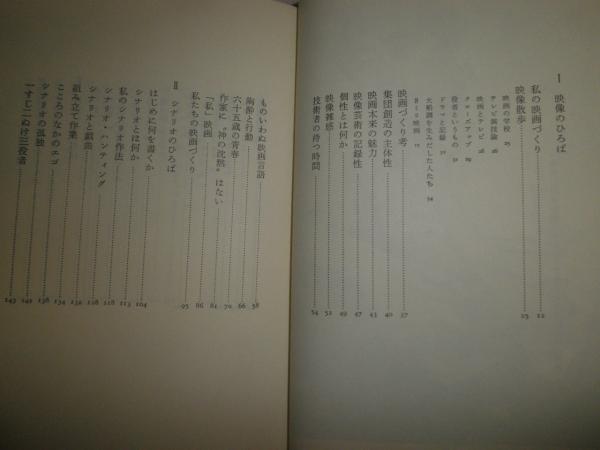 I 映像のひろば
私の映画づくり 12
映像散歩 25
映画の学校 25
テレビ演技論 26
映画とテレビ
クローズアップ
役者というもの
ドラマと記録
大船調を生みだした人たち 34
8ミリ映画
映画づくり考 37
集団創造の主体性 40
映画本来の魅力 43
映像芸術の記録性 47
個性とは何か 49
映像雑感 52
技術者の待つ時間 54
ものいわぬ映画言語 58
陶酔と行動 66
六十五歳の青春 70
作家に“神の沈黙”はない
「私」映画 86
私たちの映画づくり 95
II シナリオのひろば
はじめに何を書くか 104
シナリオとは何か 113
私のシナリオ作法 118
シナリオ・ハンティング
シナリオと戯曲
組み立て作業 132
こころのなかのエゴ 134
シナリオの孤独 138
一すじ二ぬけ三役者